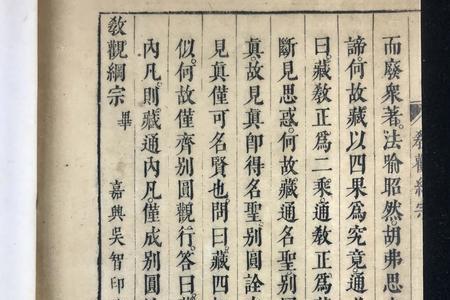 教觀綱宗
而廢衆著。法喻昭然。胡弗思
諦。何故藏以四果爲究竟。通
曰。藏教正爲二乘。通教正爲
斷見思惑。何故藏通名聖。別
眞。故見眞卽得名聖。別圓詮
見眞。僅可名賢也。問曰。藏四
似。何故僅齊別圓觀行。答曰。
內凡。則藏通內凡。僅成別圓
教觀綱宗 畢
嘉興吳智印